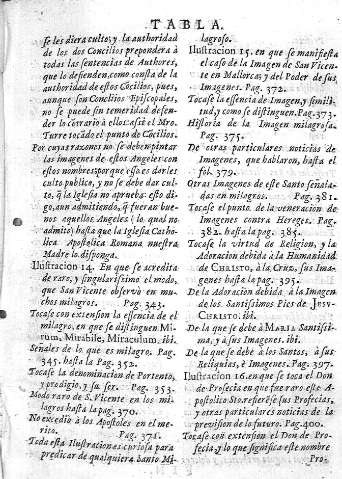 TABLA.
se les diera culto, y la authoridad
de los dos Concilios prepondera à
todas las sentencias de Authores,
que lo defienden, como consta de la
authoridad de estos Cōcilios, pues,
aunque son Concilios Episcopales,
no se puede sin temeridad defender
lo cōtrario à ellos: assi el Sr.
Turre tocādo el punto de Cōcilios.
Por cuyas razones no se deben pintar
las imagenes de estos Angeles con
estos nombres; porque esso es darles
culto publico, y no se debe dar culto,
q̃ la Iglesia no aprueba: esto digo,
aun admitiendo, q̃ fueran buenos
aquellos Angeles (lo qual no
admito) hasta que la Iglesia Catholica
Apostolica Romana nuestra
Madre lo disponga.
Ilustracion 14. En que se acredita
de raro, y singularissimo el modo,
que San Vicente observò en muchos
milagros. Pag. 343.
Tocase con extension la essencia de el
milagro, en que se distinguen Mirum,
Mirabile, Miraculum. ibi.
Señales de lo que es milagro. Pag.
345. hasta la Pag. 352.
Tocase la denominacion de Portento,
y prodigio, y su ser. Pag. 353.
Modo raro de S. Vicente en los milagros
hasta la pag. 370.
No excediò à los Apostoles en el merito.
Pag. 371.
Toda esta Ilustracion es curiosa para
predicar de qualquiera Santo Milagroso.
Ilustracion 15. en que se manifiesta
el caso de la Imagen de San Vicente
en Mallorca; y del Poder de sus
Imagenes. Pag. 372.
Tocase la essencia de Imagen, y similitud,
y como se distinguen. Pag. 373.
Historia de la Imagen milagrosa.
Pag. 375.
De otras particulares noticias de
Imagenes, que hablaron, hasta el
fol. 379.
Otras Imagenes de este Santo señaladas
en milagros. Pag. 381.
Tocase el punto de la veneracion de
Imagenes contra Hereges. Pag.
382. hasta la pag. 385.
Tocase la virtud de Religion, y la
Adoracion debida à la Humanidad
de CHRISTO, à la Cruz, sus Imagenes
hasta la pag. 395.
De la Adoracion debida à la Imagen
de los Santissimos Pies de JesuCHRISTO.
ibi.
De la que se debe à MARIA Santissima,
y à sus Imagenes. ibi.
De la que se debe à los Santos, à sus
Reliquias, è Imagenes. Pag. 397.
Ilustracion 16. en que se toca el Don
de Profecia en que fue raro este Apostolico
Sto. refierēse sus Profecias,
y otras particulares noticias de la
prevision de lo futuro. Pag. 400.
Tocase con extension el Don de Profecia,
y lo que significa este nombre
Pro-